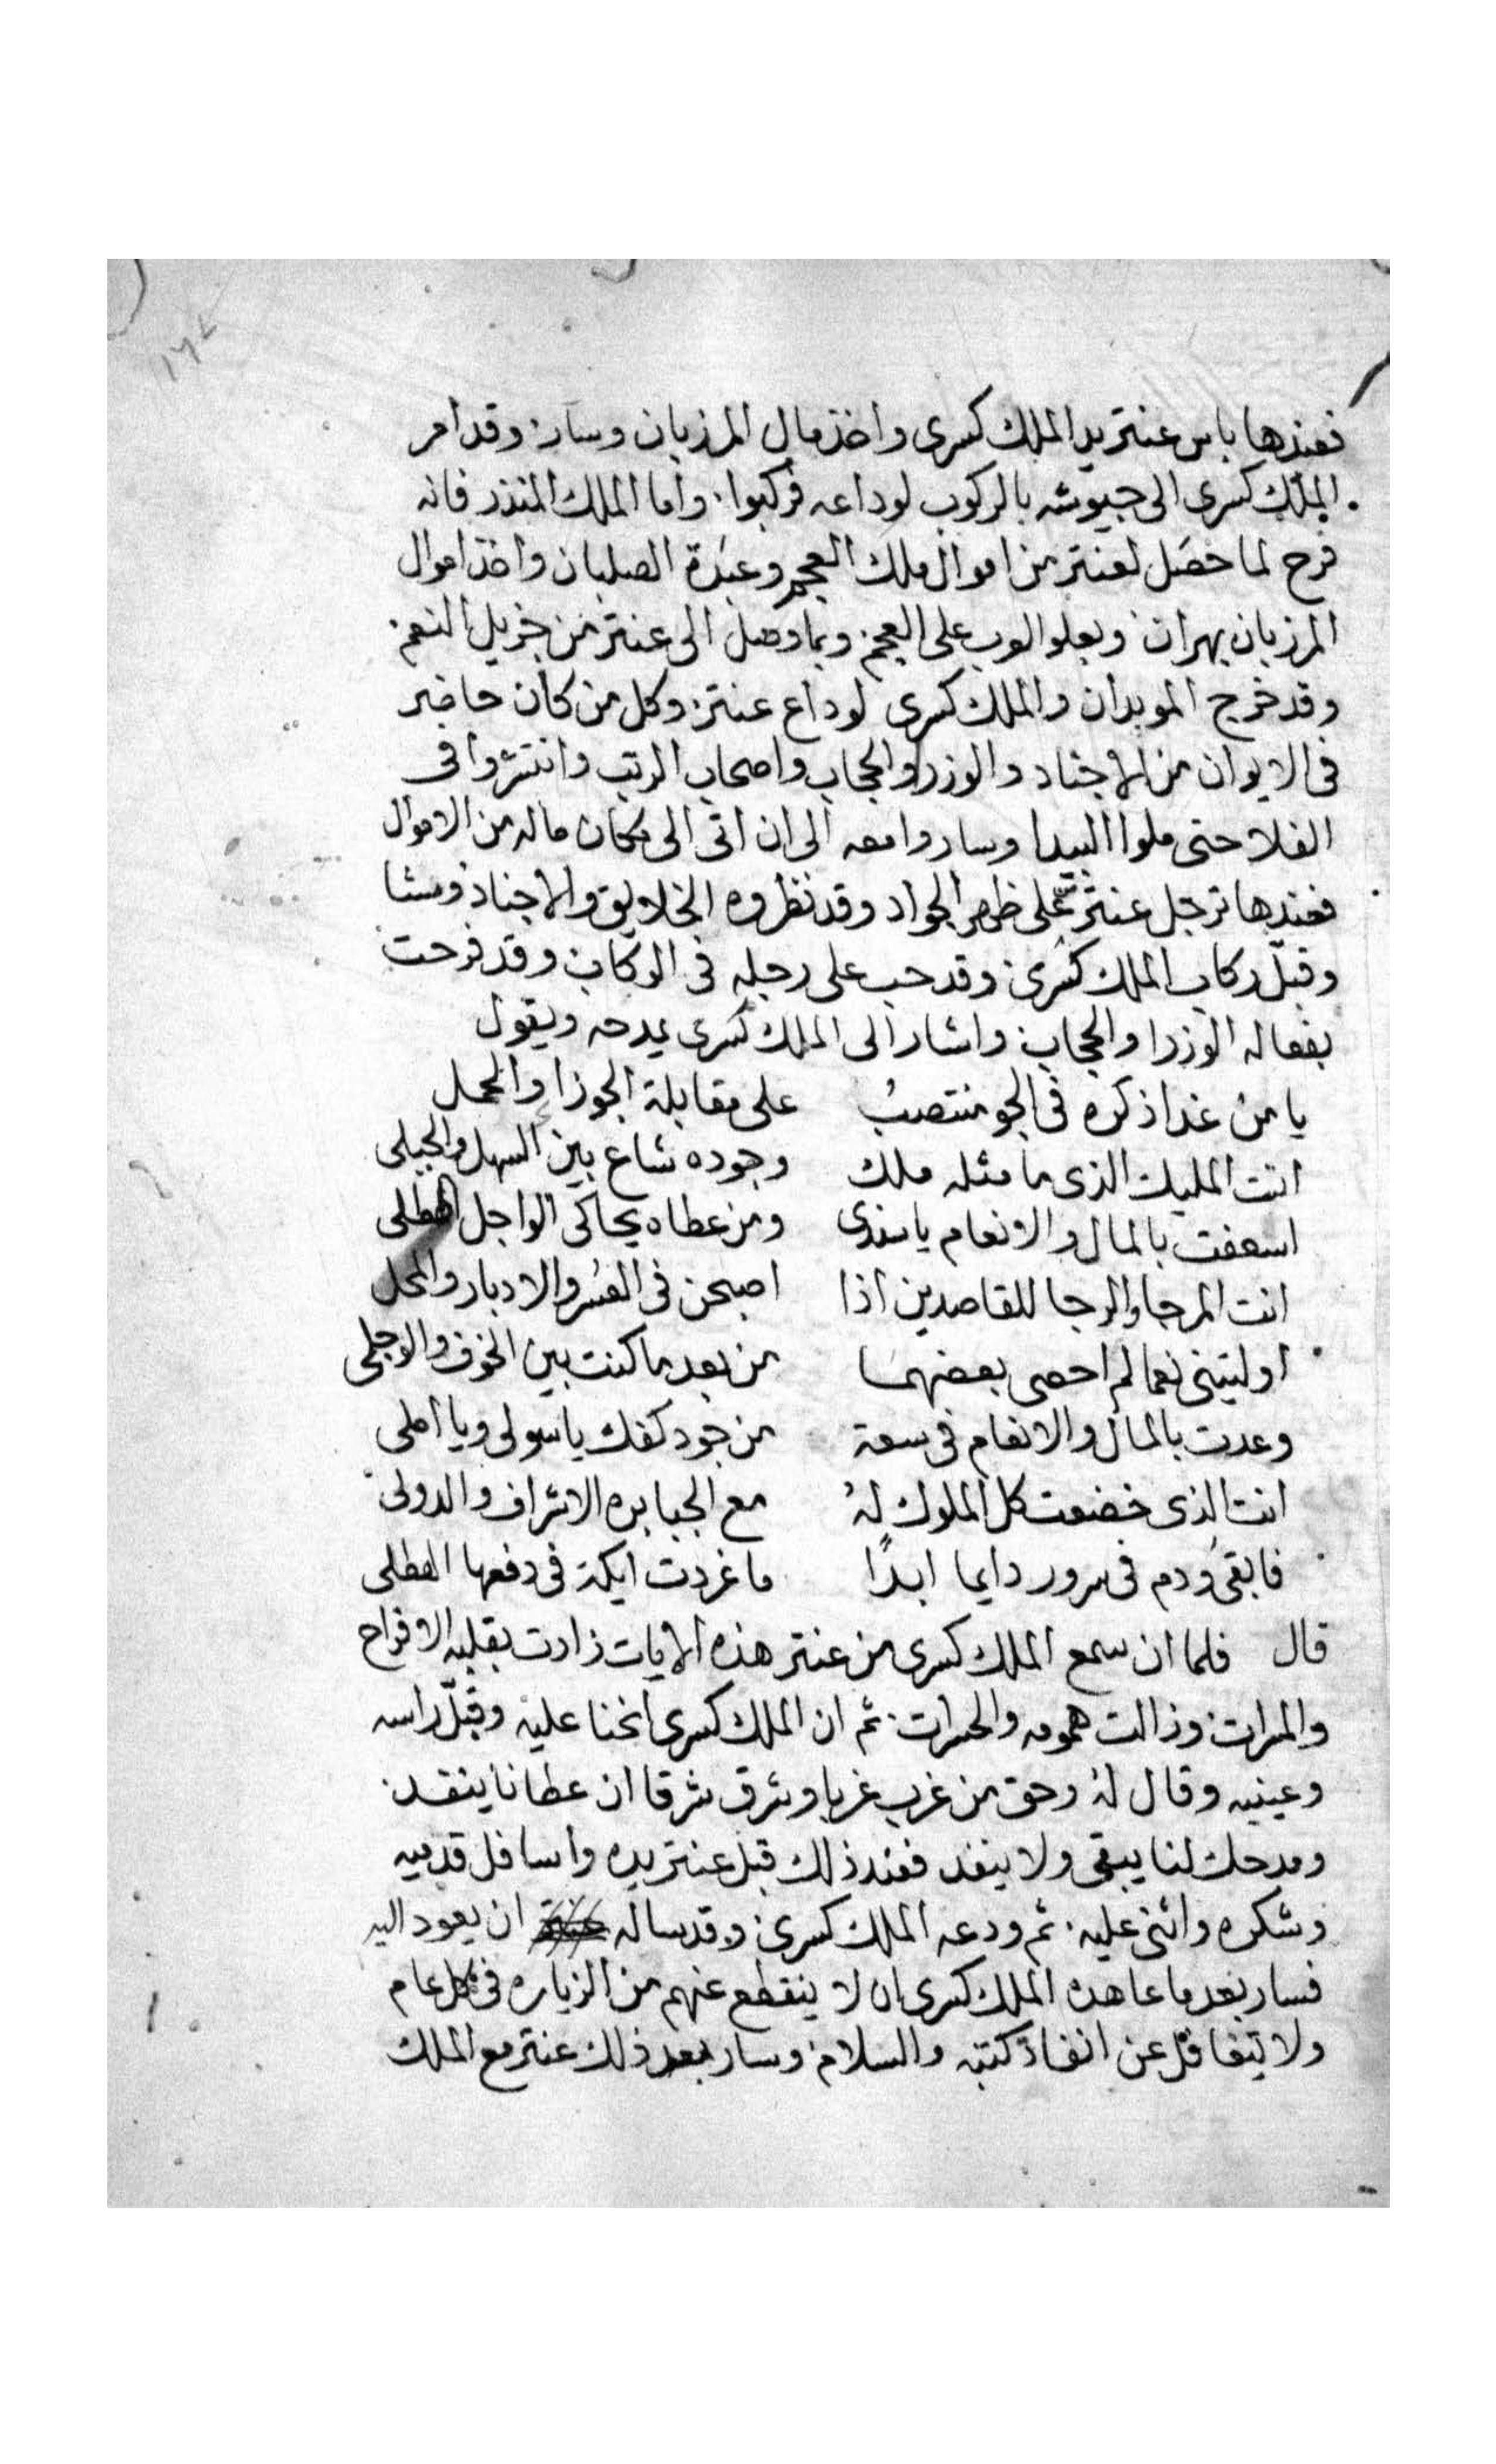 ١٦٧
فعندها باس عنتر يد الملك كسرى واخذ مال المرزبان وسار. وقد امر
الملك كسرى الى جيوشه بالركوب لوداعه فركبوا. واما الملك المنذر فانه
فرح لما حصل لعنتر من اموال ملك العجم وعبدة الصلبان واخذ اموال
المرزبان بهران ويعلوا العرب على العجم. وبما وصل الى عنتر من جزيل النعم.
وقد خرج الموبدان والملك كسرى لوداع عنتر. وكل من كان حاضر
فى الايوان من الاجناد والوزرا والحجاب واصحاب الرتب وانتشروا فى
الفلا حتى ملوا البيدا وساروا معه الى ان اتى الى مكان ماله من الاموال
فعندها ترجل عنتر على ظهر الجواد وقد نظروه الخلايق والاجناد ومشا
وقبّل ركاب الملك كسرى. وقد حب على رجله فى الركاب وقد فرحت
بفعاله الوزرا والحجاب. واشار الى الملك كسرى يمدحه ويقول
يا من غدا ذكره فى الجو منتصبُ على مقابلة الجوزا والحمل
انت المليك الذى ما مثله ملك وجوده شاع بين السهل والجبلى
اسعفت بالمال والانعام يا سندى ومن عطاه يحاكى الواجل الهطلى
انت المرجا والرجا للقاصدين اذا اصبحن فى العسر والادبار والمحل
اوليتنى نعما لم احصى بعضهما من بعد ما كنت بين الخوف والوجلى
وعدت بالمال والانعام فى سعة من جود كفك يا سولى ويا املى
انت الذى خضعت كل الملوك لهُ مع الجبابره الاشراف والدولى
فابقى ودم فى سرور دايما ابدًا ما غردت ايكة فى دفعها الهطلى
قال فلما ان سمع الملك كسرى من عنتر هذه الابيات زادت بقلبه الافراح
والمسرات. وزالت همومه والحسرات. ثم ان الملك كسرى انحنا عليه وقبّل راسه
وعينيه وقال لهُ وحق من غرب غربا وشرق شرقا ان عطانا ينفد.
ومدحك لنا يبقى ولا ينفد فعند ذلك قبل عنتر يده واسافل قدميه
وشكره واثنى عليه. ثم ودعه الملك كسرى. وقد ساله ان يعود اليه
فسار بعد ما عاهده الملك كسرى ان لا ينقطع عنهم من الزياره فى كل عام
ولا يتغافل عن انفاذ كتبه والسلام. وسار بعد ذلك عنتر مع الملك